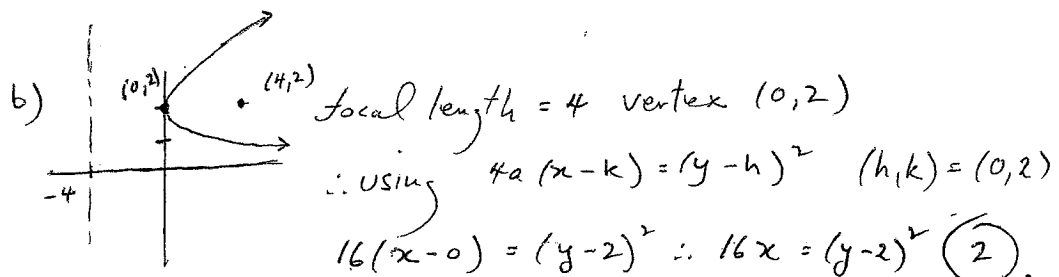 b) (0,2) (4,2) focal length = 4 vertex (0,2)
-4 ∴ using 4a(x-k) = (y-h)² (h,k) = (0,2)
16(x-0) = (y-2)² ∴ 16x = (y-2)² (2).